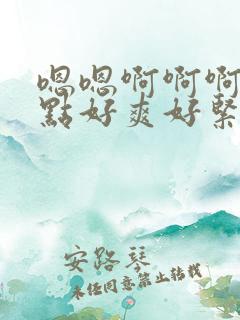 嗯嗯啊啊啊
點好爽好緊
安路琴
未经同意禁止转载